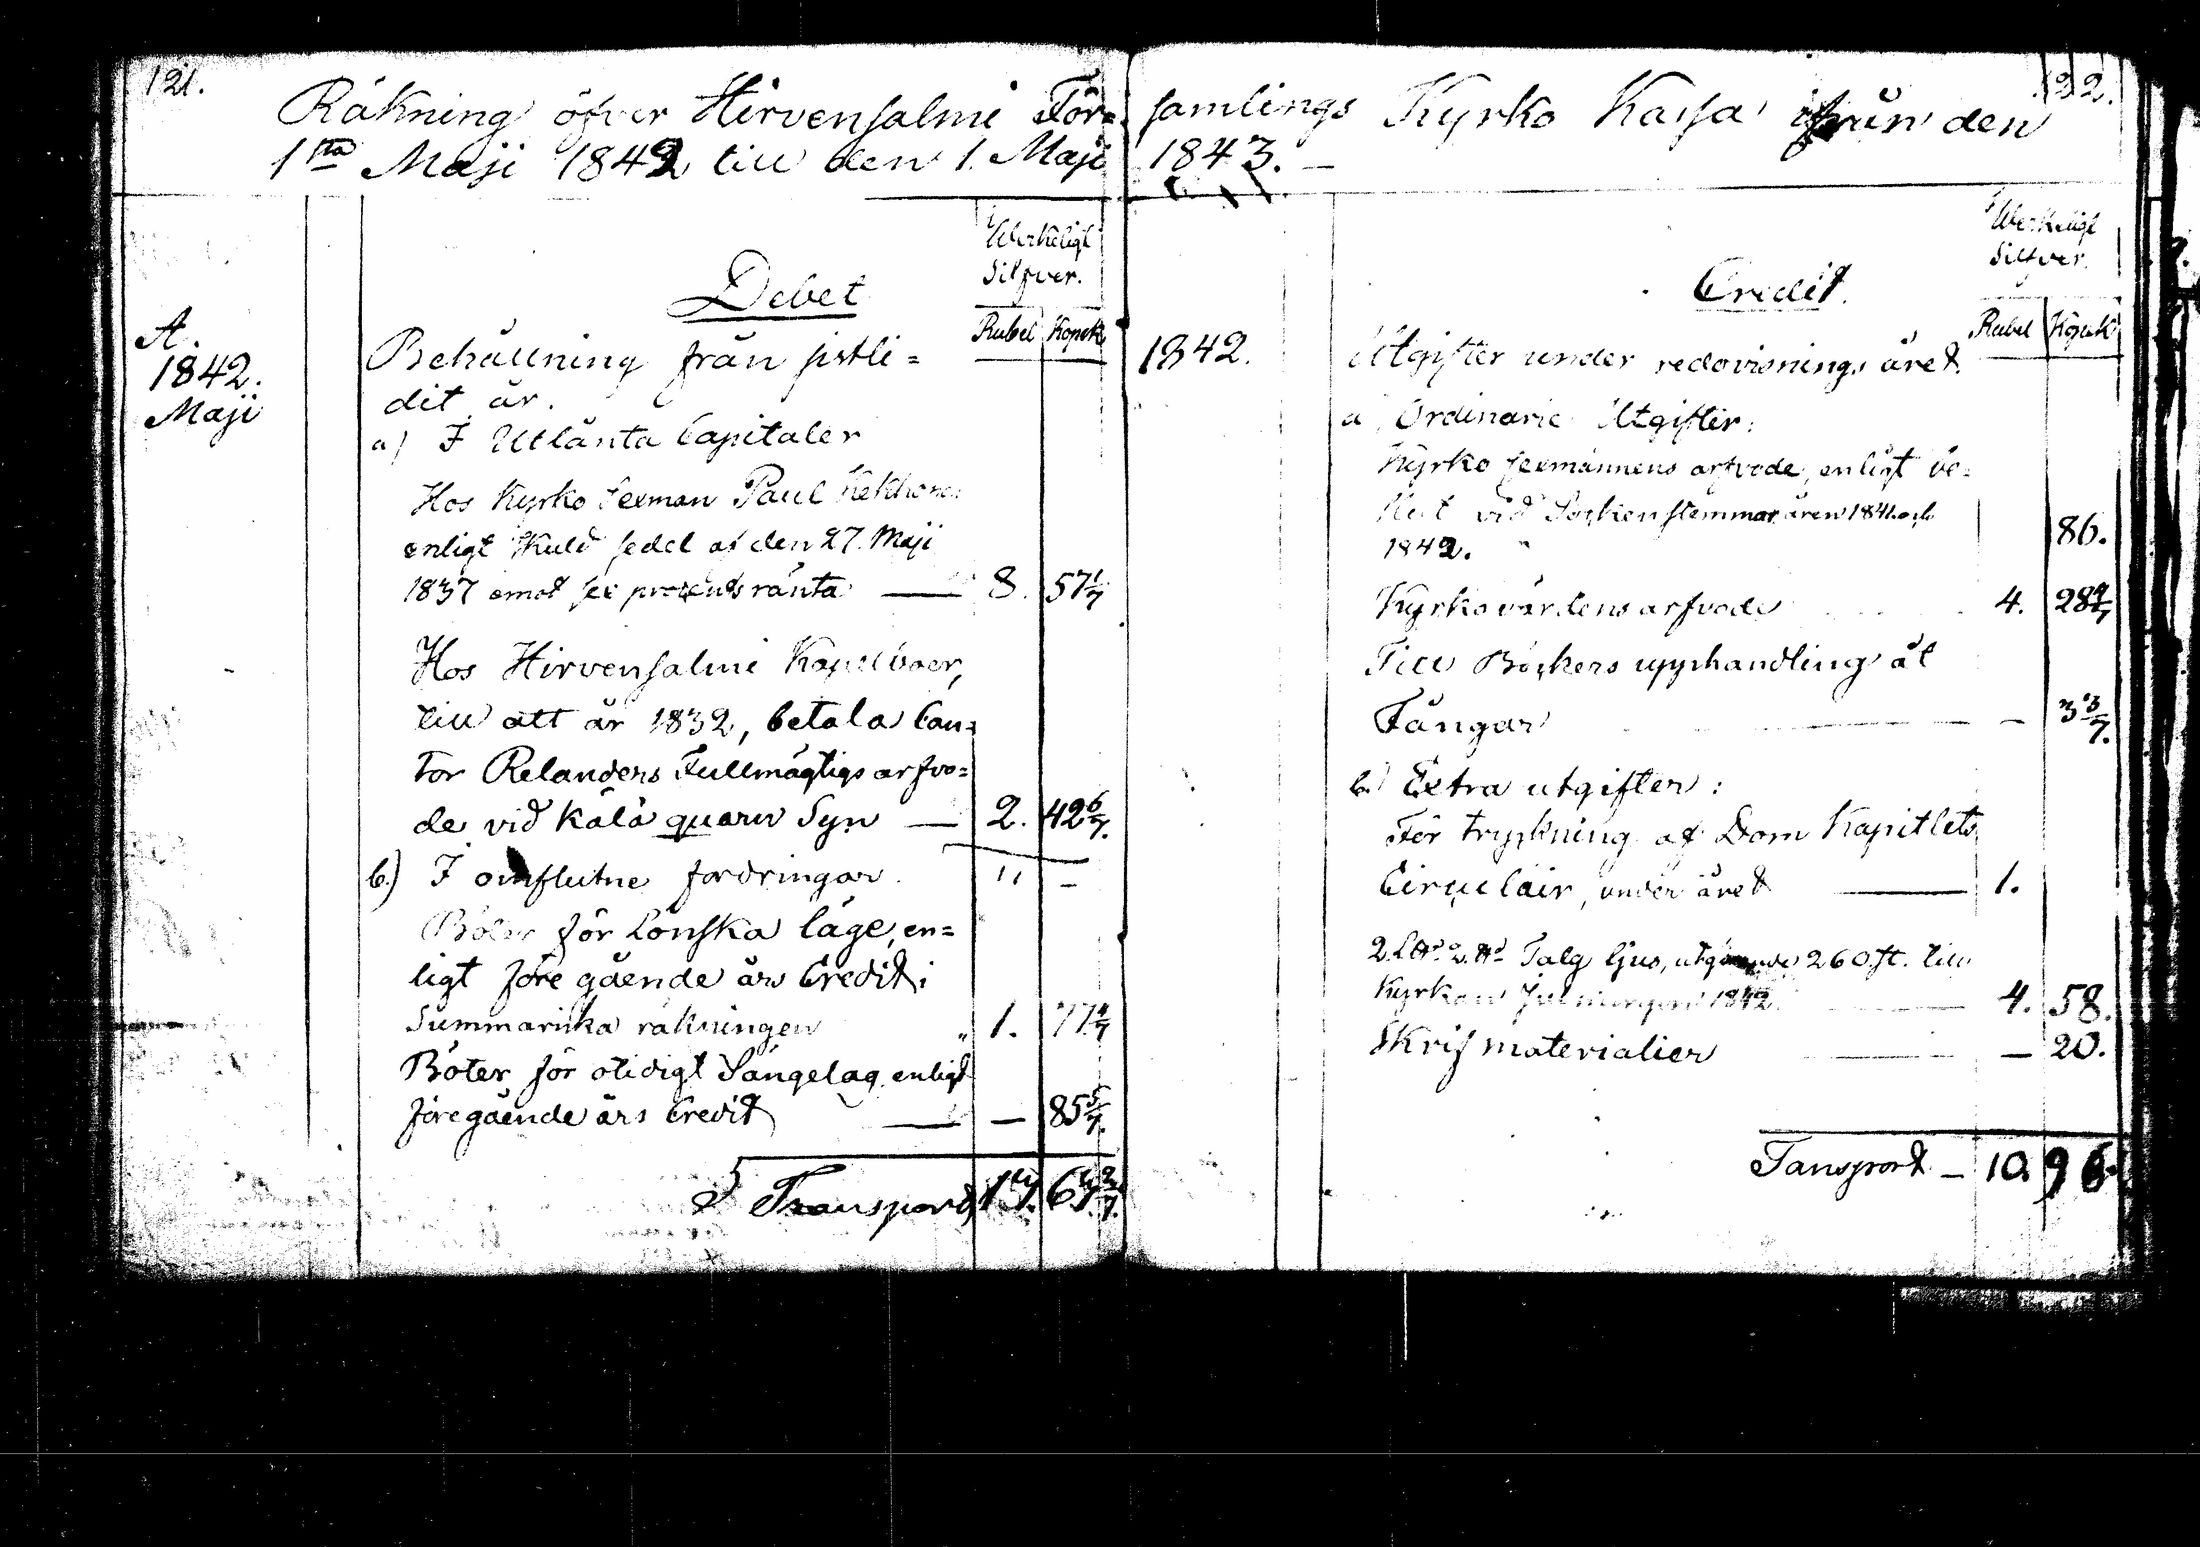 121.
122.
Räkning öfver Hirvensalmi För= samlings Kyrko Kassa ifrån den
1sta Maji 1842 till den 1. Maji 1843. —
Werkeligt
Silfver.
Debet
Rubel Kopek
A.
1842.
Maji
Behållning från sistli=
dit år.
a) I Utlånta Capitaler
Hos Kyrko Sexman Paul Kekkonen
enligt Skuld sedel af den 27. Maji
1837 emot sex procents ränta — 8. 57 1/7
Hos Hirvensalmi Kapellboer,
till att år 1832, betala Can=
tor Relanders Fullmägtigs arfvo=
de vid Kälä quarn Syn — 2. 42 6/7.
b.) I omflutne fordringar. " —
Böter för Lönska läge, en=
ligt föregående års Credit i
Summariska räkningen „ 1. 77 4/7
Böter för otidigt Sängelag enligt
föregående års Credit — — 85 5/7.
Transport
Werkeligt
Silfver.
Credit.
Rubel Kopek
1842.
Utgifter under redovisnings året.
a. Ordinarie Utgifter:
Kyrko sexmännens arfvode, enligt be=
slut vid Sockenstemmor åren 1841 och
1842. 86.
Kyrkovärdens arfvode 4. 28 4/7
Till Böckers upphandling åt
Fångar — — 3 3/7.
b.) Extra utgifter:
För tryckning af Dom Kapitlets
Circulair, under året — 1.
2. L℔ 2 ℔ Talg ljus, utgörande 260. st. till
Kyrkan Julmorgon 1842. — 4. 58.
Skrif materialier — — 20.
Tansport — 10. 96.